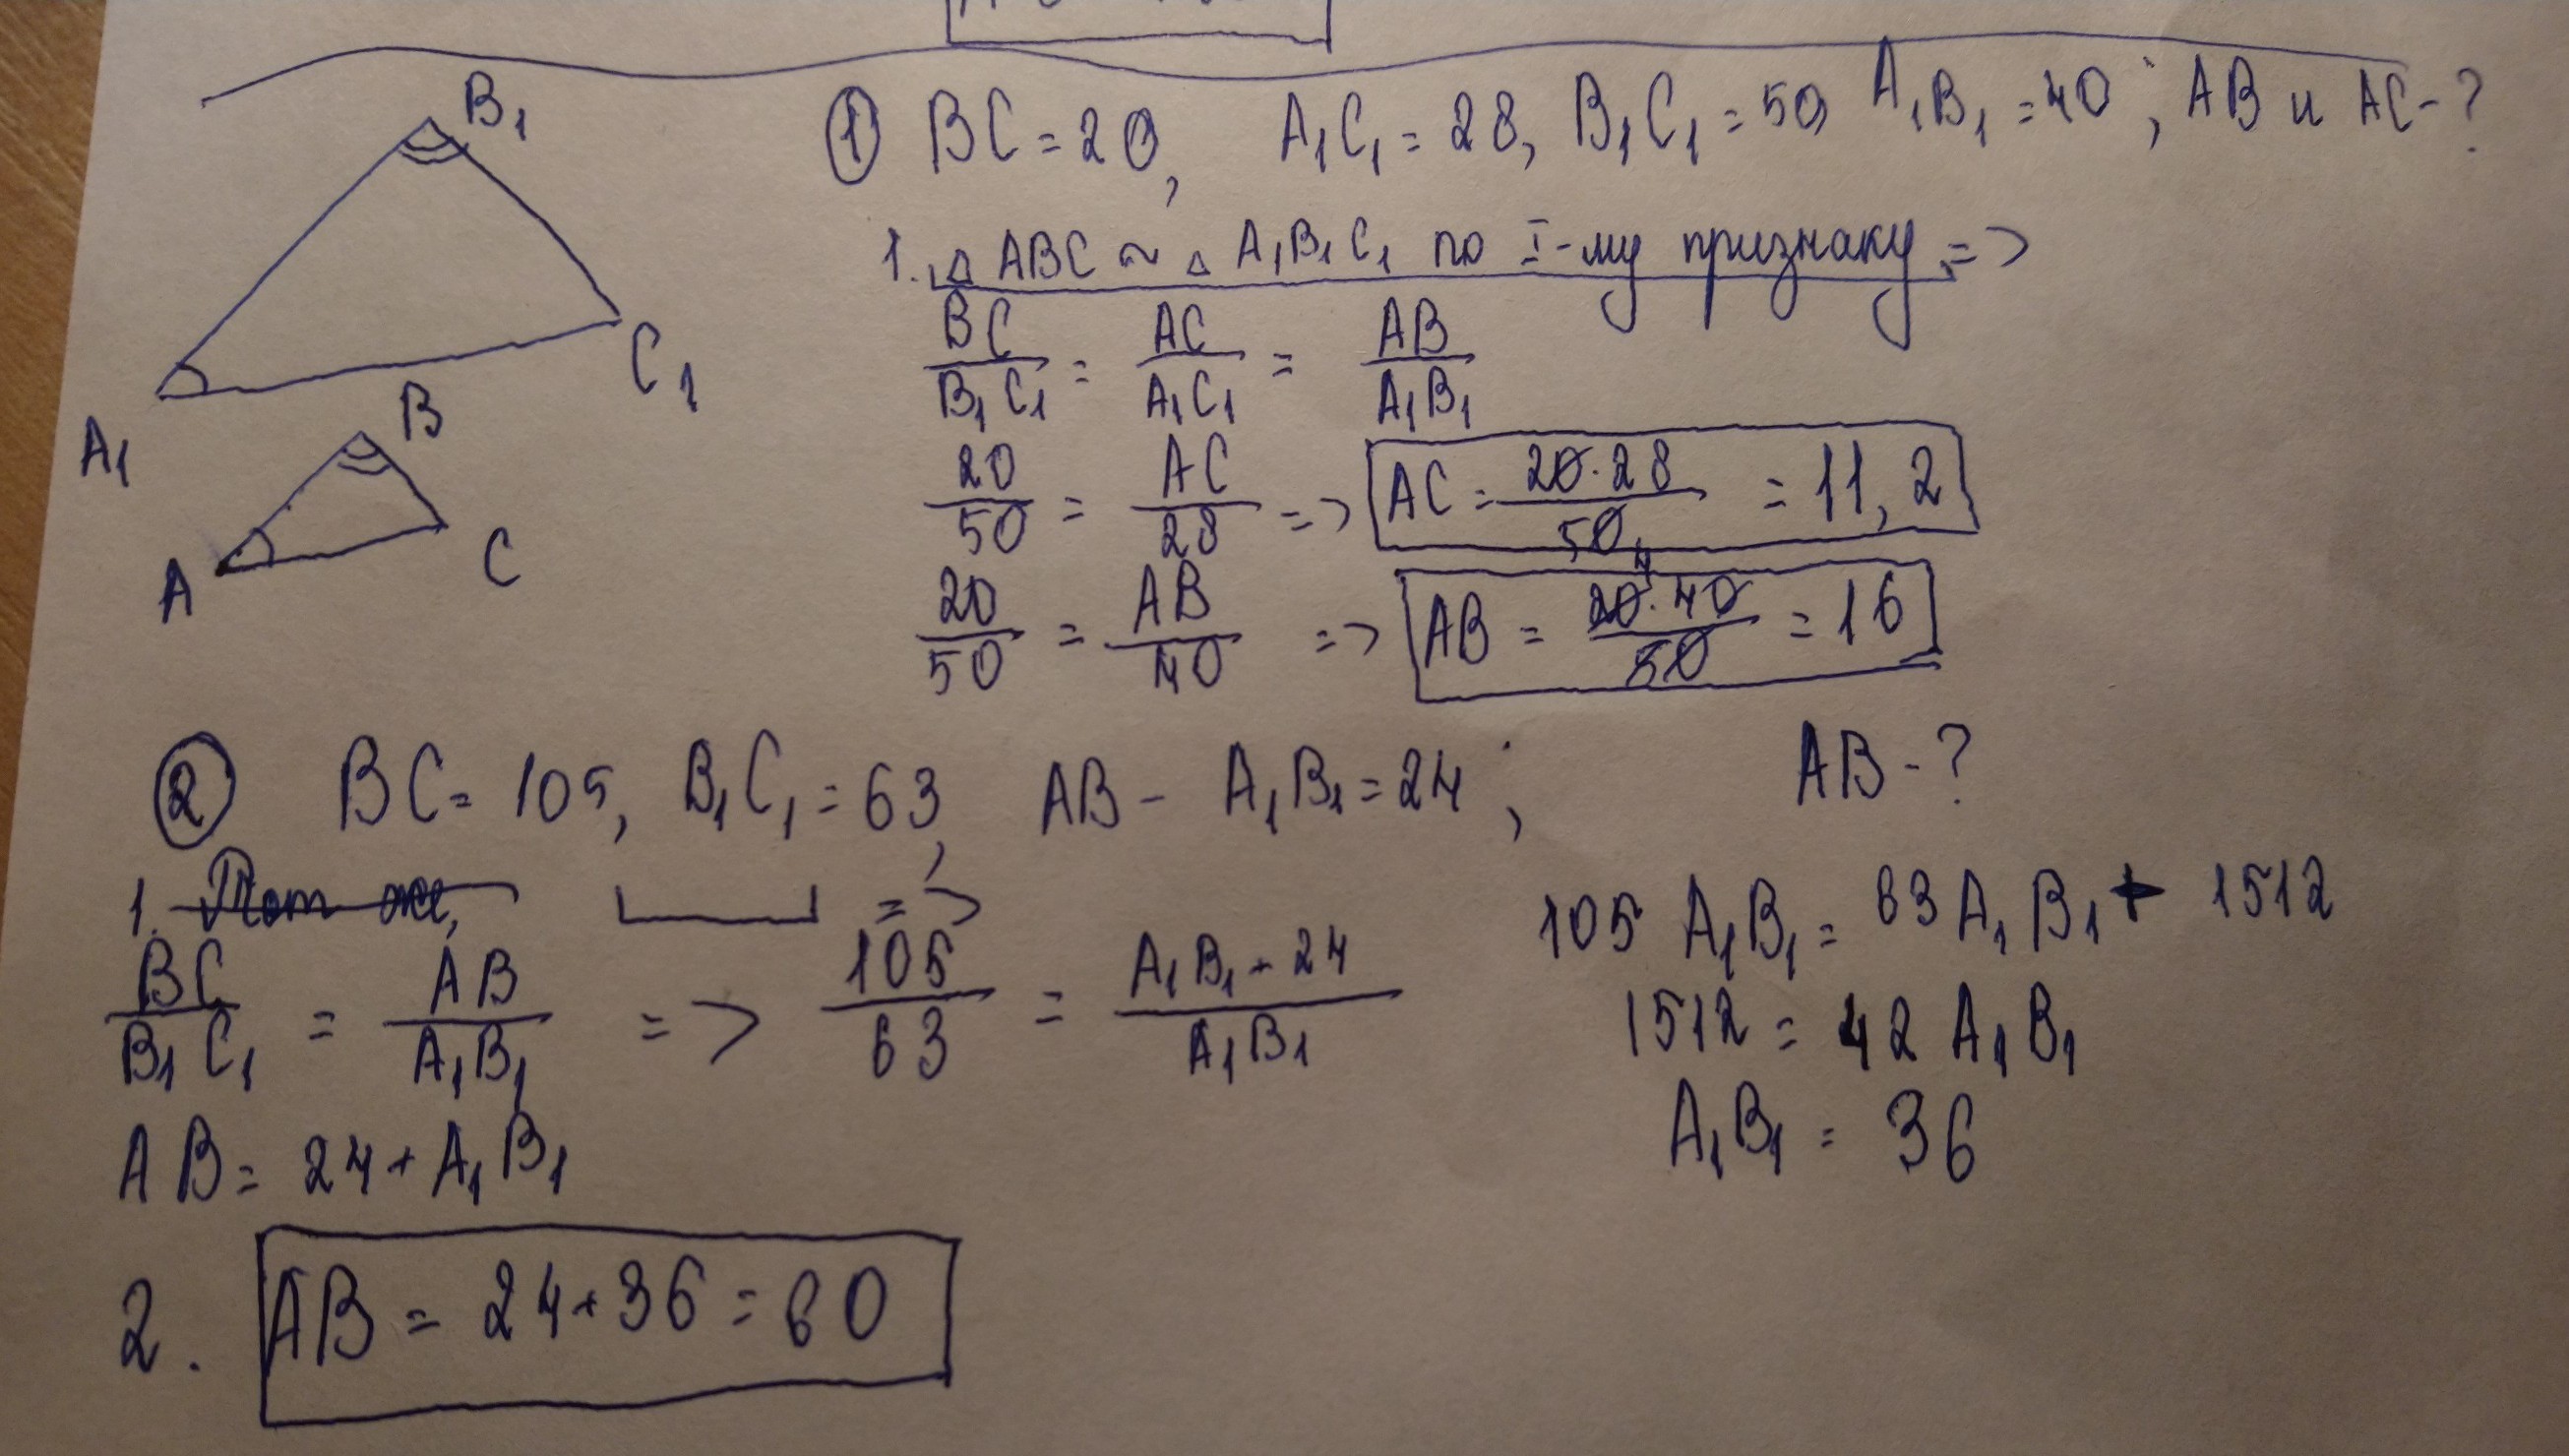 B₁
C₁
A₁
B
A
C
① BC = 20, A₁C₁ = 28, B₁C₁ = 50, A₁B₁ = 40; AB и AC - ?
1. △ ABC ~ △ A₁B₁C₁ по I-му признаку =>
BC/B₁C₁ = AC/A₁C₁ = AB/A₁B₁
20/50 = AC/28 => AC = 20·28/50 = 11,2
20/50 = AB/40 => AB = 20·40/50 = 16
4
② BC = 105, B₁C₁ = 63, AB - A₁B₁ = 24; AB - ?
1. =>
BC/B₁C₁ = AB/A₁B₁ => 105/63 = A₁B₁ + 24/A₁B₁
AB = 24 + A₁B₁
105 A₁B₁ = 63 A₁B₁ + 1512
1512 = 42 A₁B₁
A₁B₁ = 36
2. AB = 24 + 36 = 60